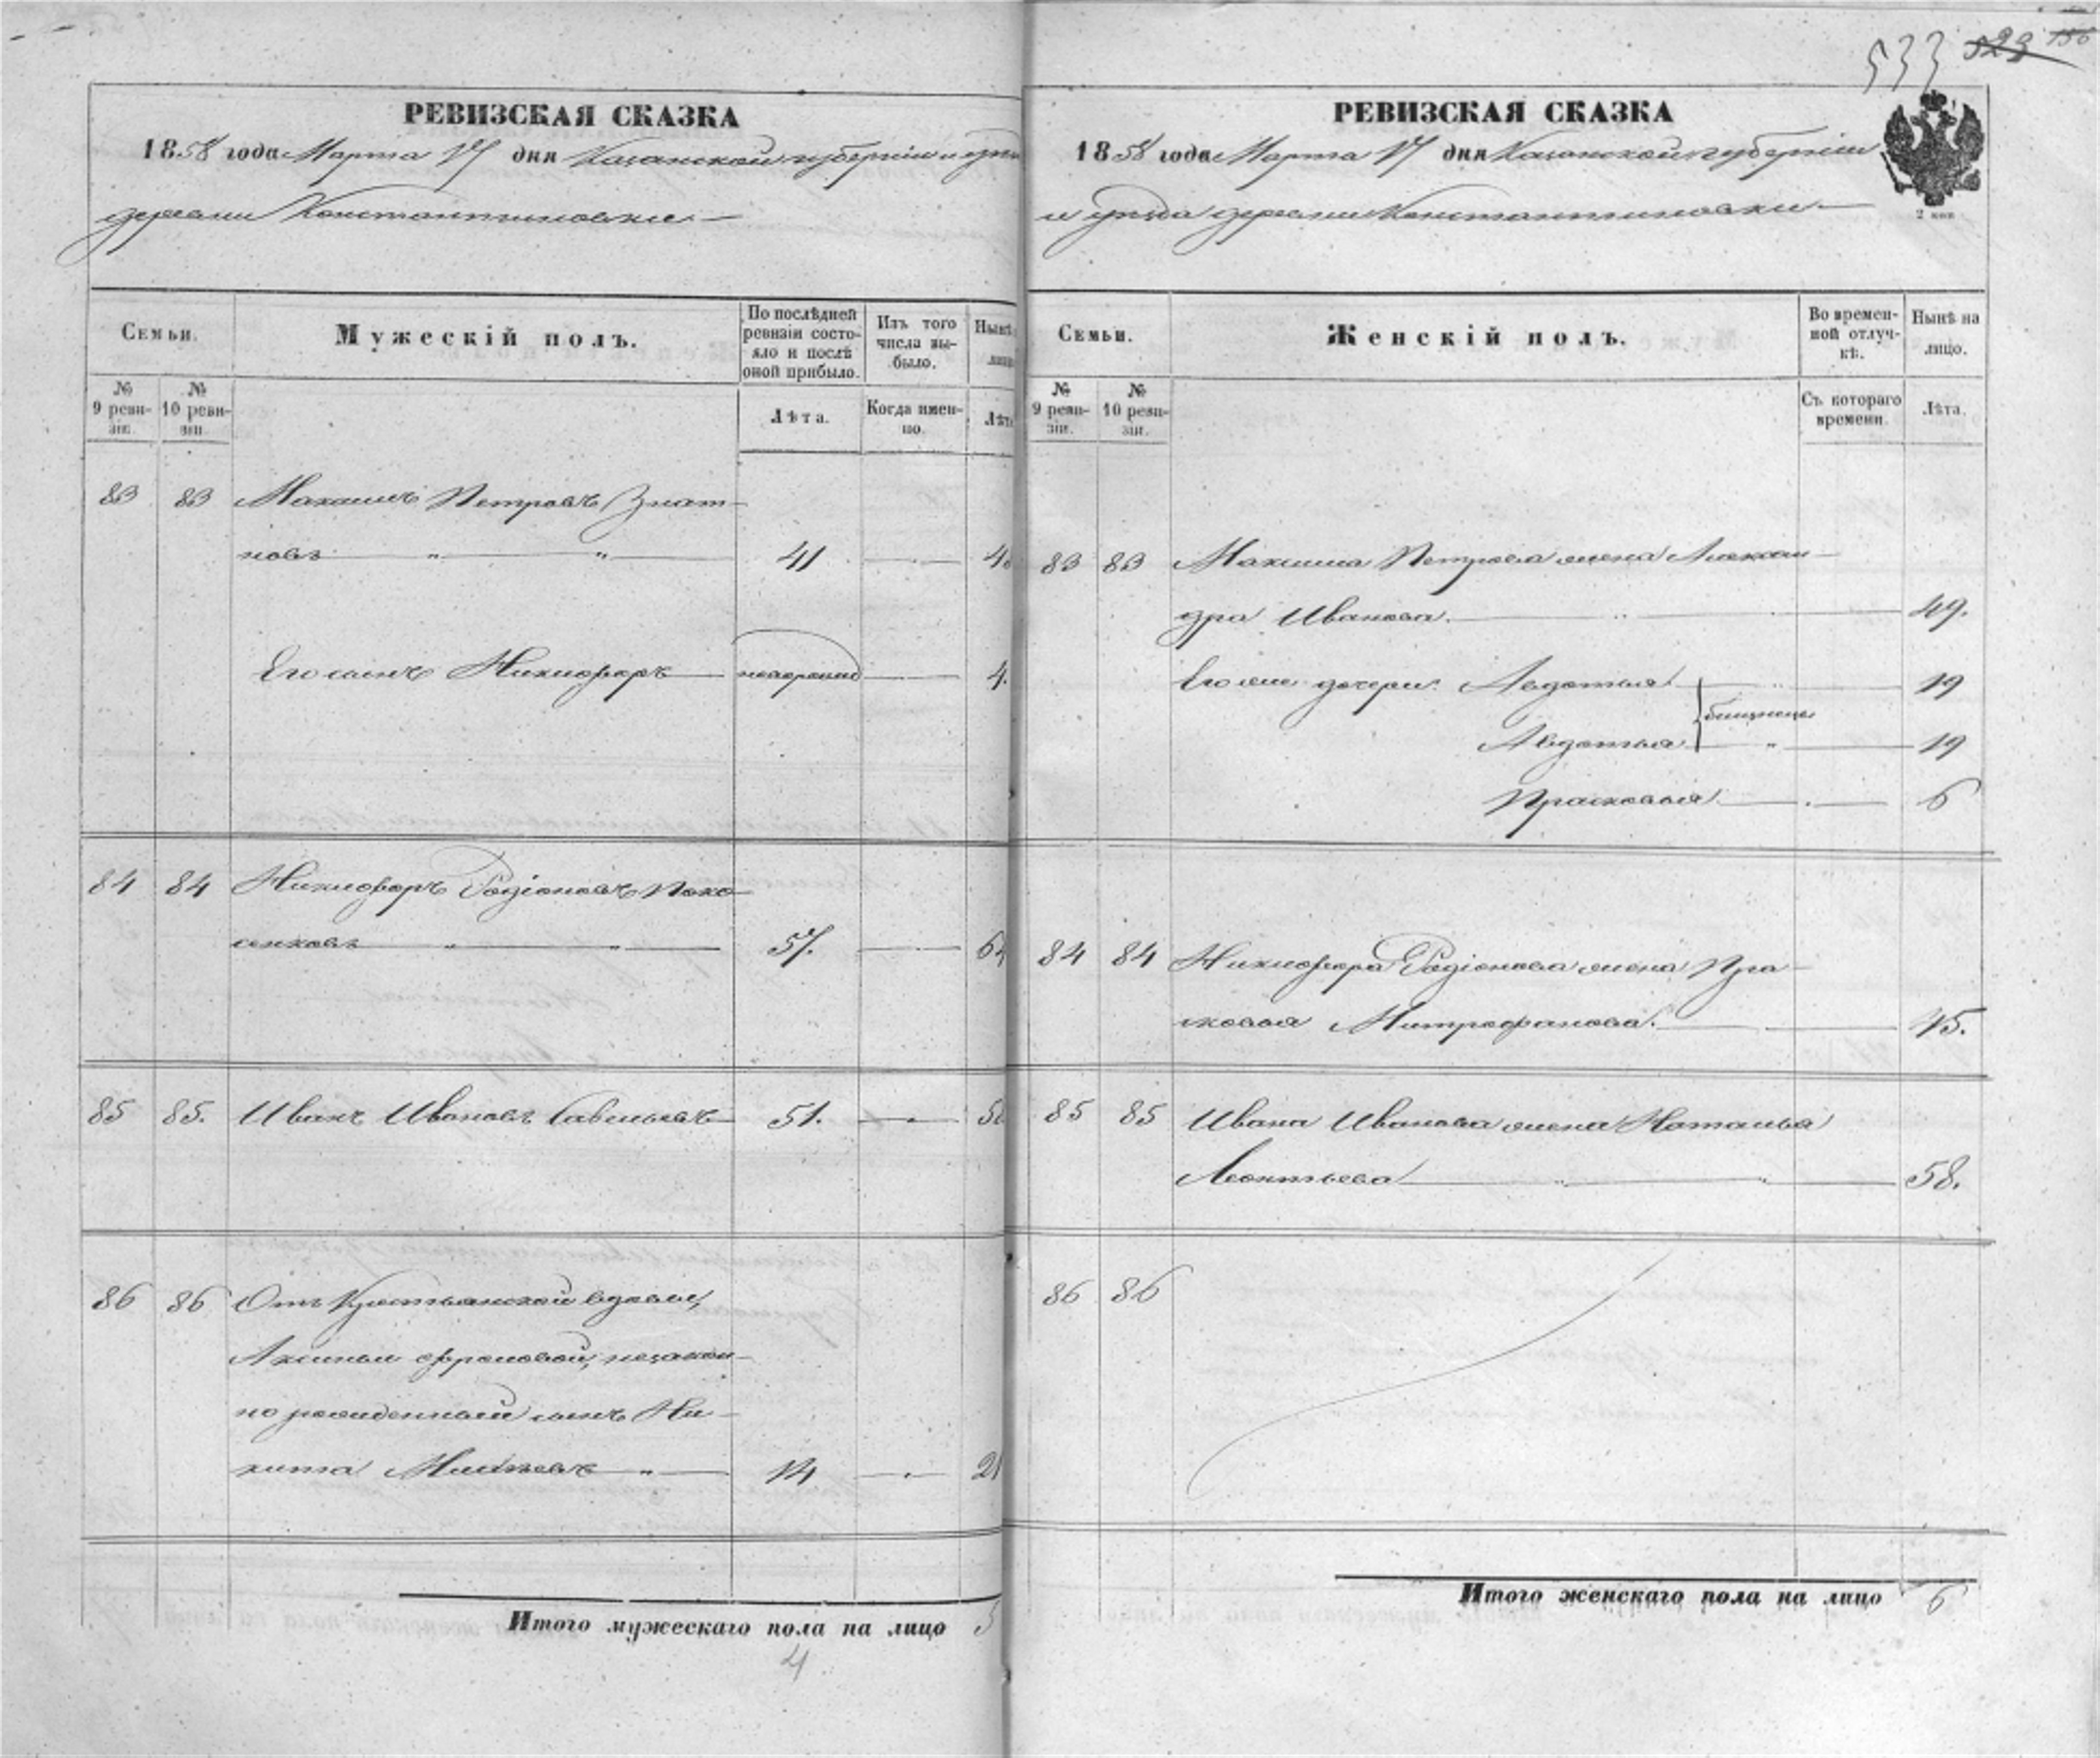 533 523 156
РЕВИЗСКАЯ СКАЗКА
1858 года Марта 17 дня Казанской губерніи и уѣзда
деревни Константиновки
Семьи.
Мужескій полъ.
По послѣдней ревизіи состояло и послѣ оной прибыло.
Изъ того числа выбыло.
Нынѣ
№ 9 ревизіи.
№ 10 ревизіи.
Лѣта.
Когда именно.
Лѣта
83 83 Максимъ Петровъ
новъ 41
Его сынъ Никифоръ новорожд 4.
84 84 Никифоръ Родіоновъ
сенковъ 57. 64
85 85. Иванъ Ивановъ Савельевъ 51.
86 86 Отъ Крестьянской вдовы,
Аксиньи Фроловой, незакон-
но рожденный сынъ Ни-
кита 14 21
Итого мужескаго пола на лицо 5
4
РЕВИЗСКАЯ СКАЗКА
1858 года Марта 17 дня Казанской губерніи
и уѣзда деревни Константиновки
2 коп
Семьи.
Женскій полъ.
Во временной отлучкѣ.
Нынѣ на лицо.
№ 9 ревизіи.
№ 10 ревизіи.
Съ котораго времени.
Лѣта.
83 83 Максима Петрова жена Алексан-
дра Иванова. 49.
Его же дочери: Авдотья 19
близнецы
Авдотья 19
Прасковья 6
84 84 Никифора Родіонова жена Пра-
сковья Митрофанова. 45.
85 85 Ивана Иванова жена Наталья
Леонтьева 58.
86 86
Итого женскаго пола на лицо 6